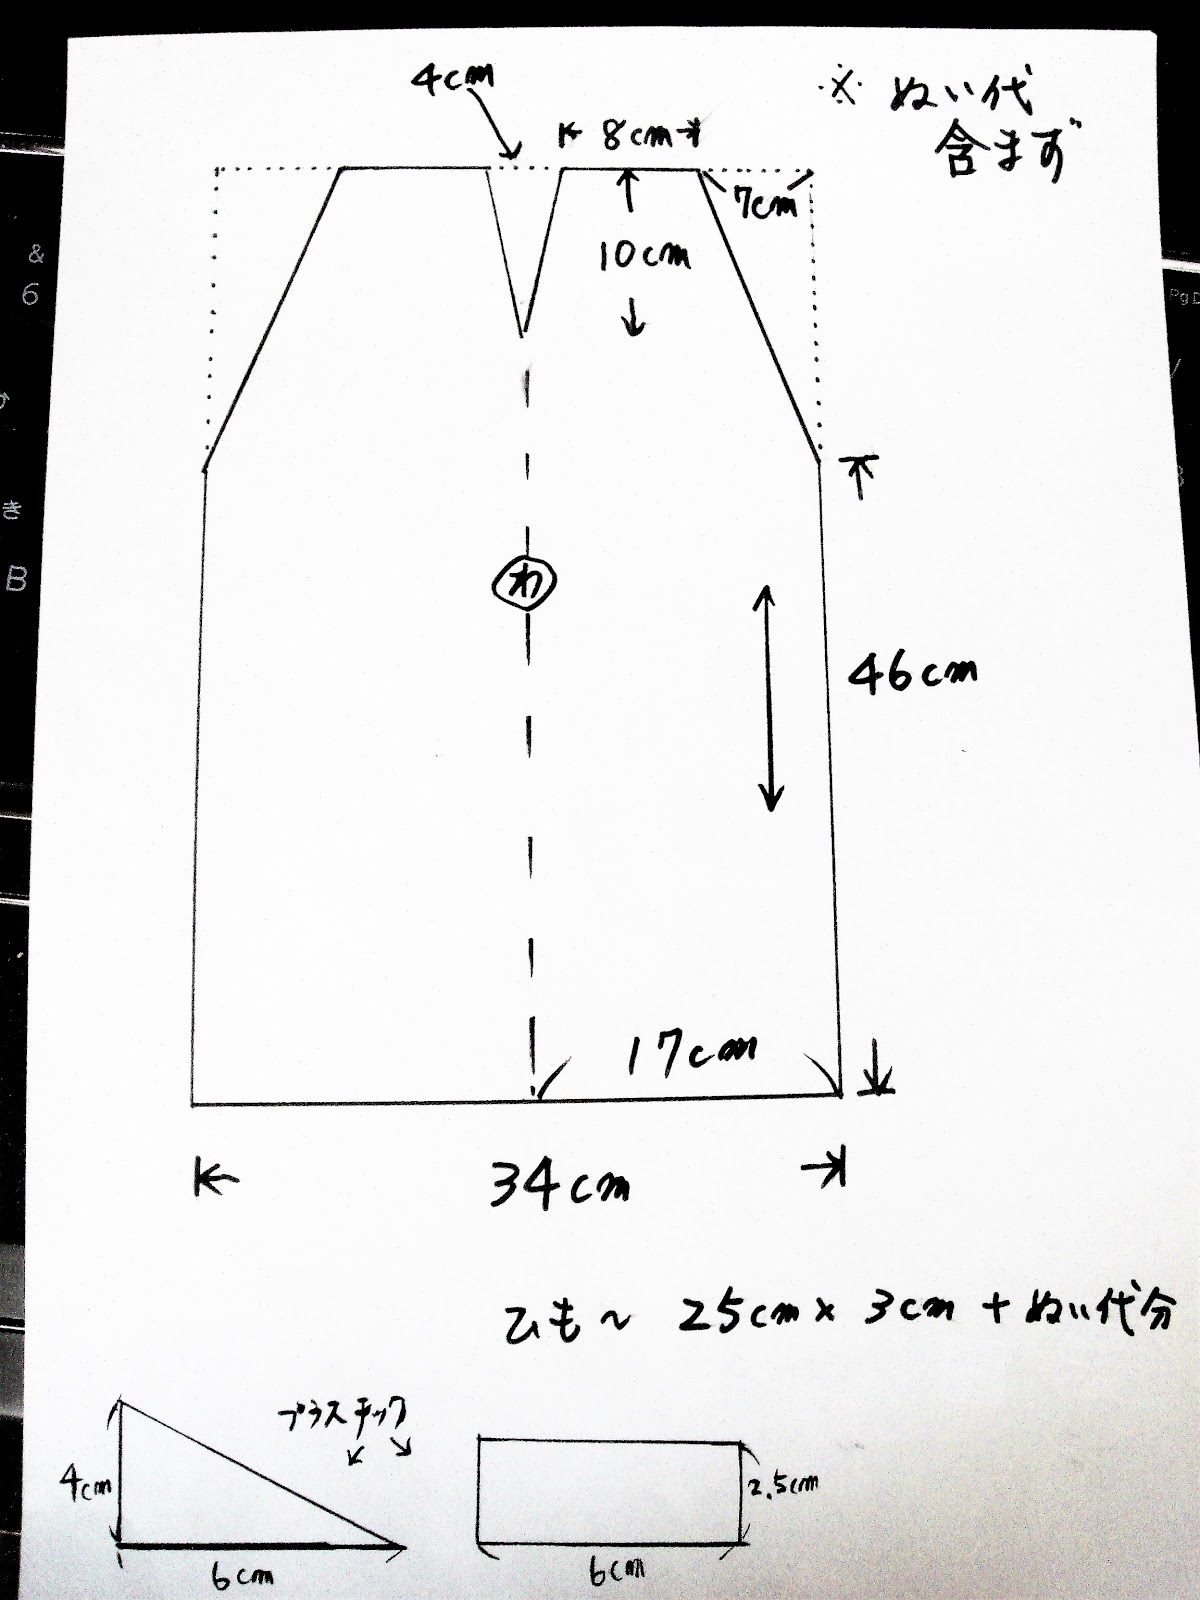 4cm
※ ぬい代
含まず
8cm
7cm
10cm
わ
46cm
17cm
34cm
ひも～ 25cm × 3cm + ぬい代分
プラスチック
4cm
6cm
2.5cm
6cm
&
6
き
B
PgD